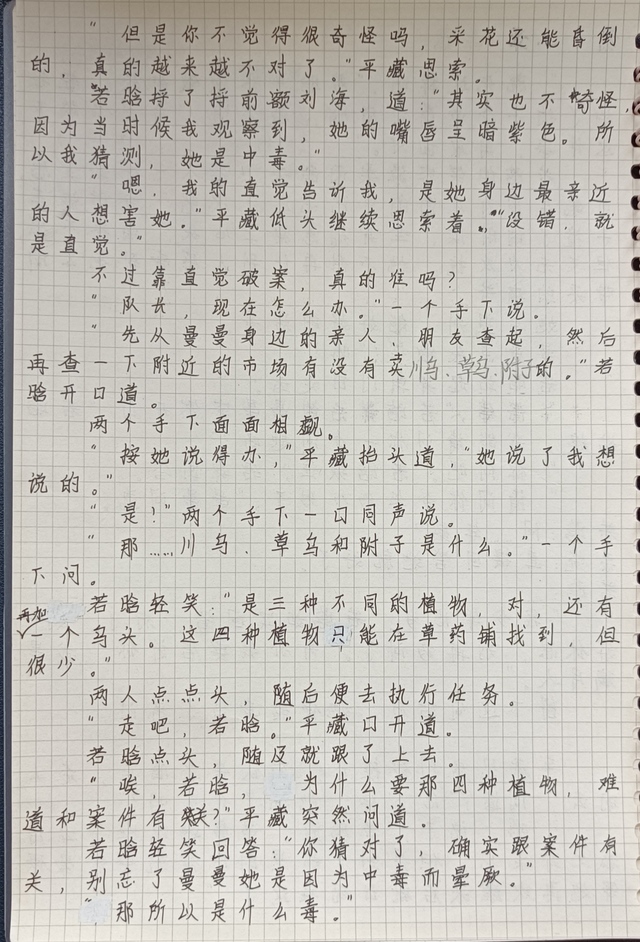 “但是你不觉得很奇怪吗，采花还能昏倒
的，真的越来越不对了。”平藏思索。
若晗捋了捋前额刘海，道：“其实也不奇怪，
因为当时候我观察到，她的嘴唇呈暗紫色。所
以我猜测，她是中毒。”
“嗯，我的直觉告诉我，是她身边最亲近
的人想害她。”平藏低头继续思索着。“没错，就
是直觉。”
不过靠直觉破案，真的准吗？
“队长，现在怎么办。”一个手下说。
“先从曼曼身边的亲人、朋友查起，然后
再查一下附近的市场有没有卖川乌、草乌、附子的。”若
晗开口道。
两个手下面面相觑。
“按她说得办，”平藏抬头道，“她说了我想
说的。”
“是！”两个手下一口同声说。
“那……川乌、草乌和附子是什么。”一个手
下问。
若晗轻笑：“是三种不同的植物，对，还有
再加一个乌头。这四种植物只能在草药铺找到，但
很少。”
两人点点头，随后便去执行任务。
“走吧，若晗。”平藏口开道。
若晗点头，随及就跟了上去。
“唉，若晗，为什么要那四种植物，难
道和案件有关？”平藏突然问道。
若晗轻笑回答：“你猜对了，确实跟案件有
关，别忘了曼曼她是因为中毒而晕厥。”
“那所以是什么毒。”